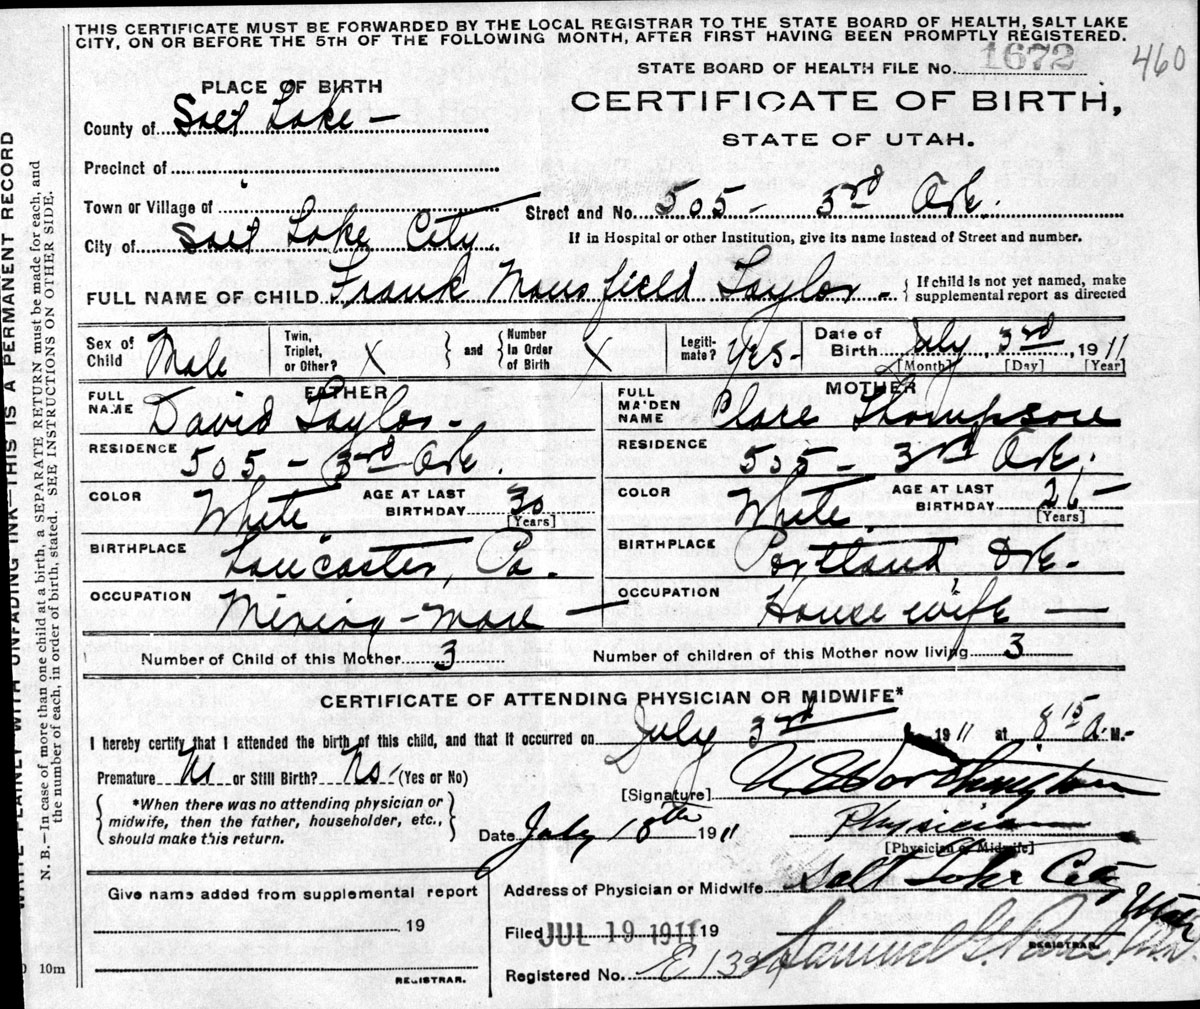 THIS CERTIFICATE MUST BE FORWARDED BY THE LOCAL REGISTRAR TO THE STATE BOARD OF HEALTH, SALT LAKE
CITY, ON OR BEFORE THE 5TH OF THE FOLLOWING MONTH, AFTER FIRST HAVING BEEN PROMPTLY REGISTERED.
1672
460
STATE BOARD OF HEALTH FILE No.
PLACE OF BIRTH
CERTIFICATE OF BIRTH,
STATE OF UTAH.
County of Salt Lake –
Precinct of
Town or Village of
Street and No. 505 – 3rd Ave.
City of Salt Lake City
If in Hospital or other Institution, give its name instead of Street and number.
FULL NAME OF CHILD Frank Mansfield Taylor – { If child is not yet named, make
supplemental report as directed
Sex of Child Male
Twin, Triplet, or Other? X } and { Number In Order of Birth X
Legiti-mate? Yes –
Date of Birth July, 3rd, 1911
[Month] [Day] [Year]
FATHER
FULL NAME David Taylor –
RESIDENCE 505 – 3rd Ave.
COLOR White AGE AT LAST BIRTHDAY 30 [Years]
BIRTHPLACE Lancaster, Pa.
OCCUPATION Mining – man –
MOTHER
FULL MAIDEN NAME Clare Thompson
RESIDENCE 505 – 3rd Ave.
COLOR White. AGE AT LAST BIRTHDAY 26 – [Years]
BIRTHPLACE Portland Ore.
OCCUPATION House wife –
Number of Child of this Mother 3 Number of children of this Mother now living 3
CERTIFICATE OF ATTENDING PHYSICIAN OR MIDWIFE*
I hereby certify that I attended the birth of this child, and that it occurred on July 3rd 1911 at 8 15 A. M.
Premature No or Still Birth? No. (Yes or No)
[Signature] Worthington
{ *When there was no attending physician or
midwife, then the father, householder, etc.,
should make this return. }
Date July 18th 1911
Physician
[Physician or Midwife]
Give name added from supplemental report
19
REGISTRAR.
Address of Physician or Midwife Salt Lake City, Utah
Filed JUL 19 1911 19
Samuel G. Paul
REGISTRAR.
Registered No. E 1324
WRITE PLAINLY WITH UNFADING INK—THIS IS A PERMANENT RECORD
N. B.—In case of more than one child at a birth, a SEPARATE RETURN must be made for each, and
the number of each, in order of birth, stated. SEE INSTRUCTIONS ON OTHER SIDE.
10m